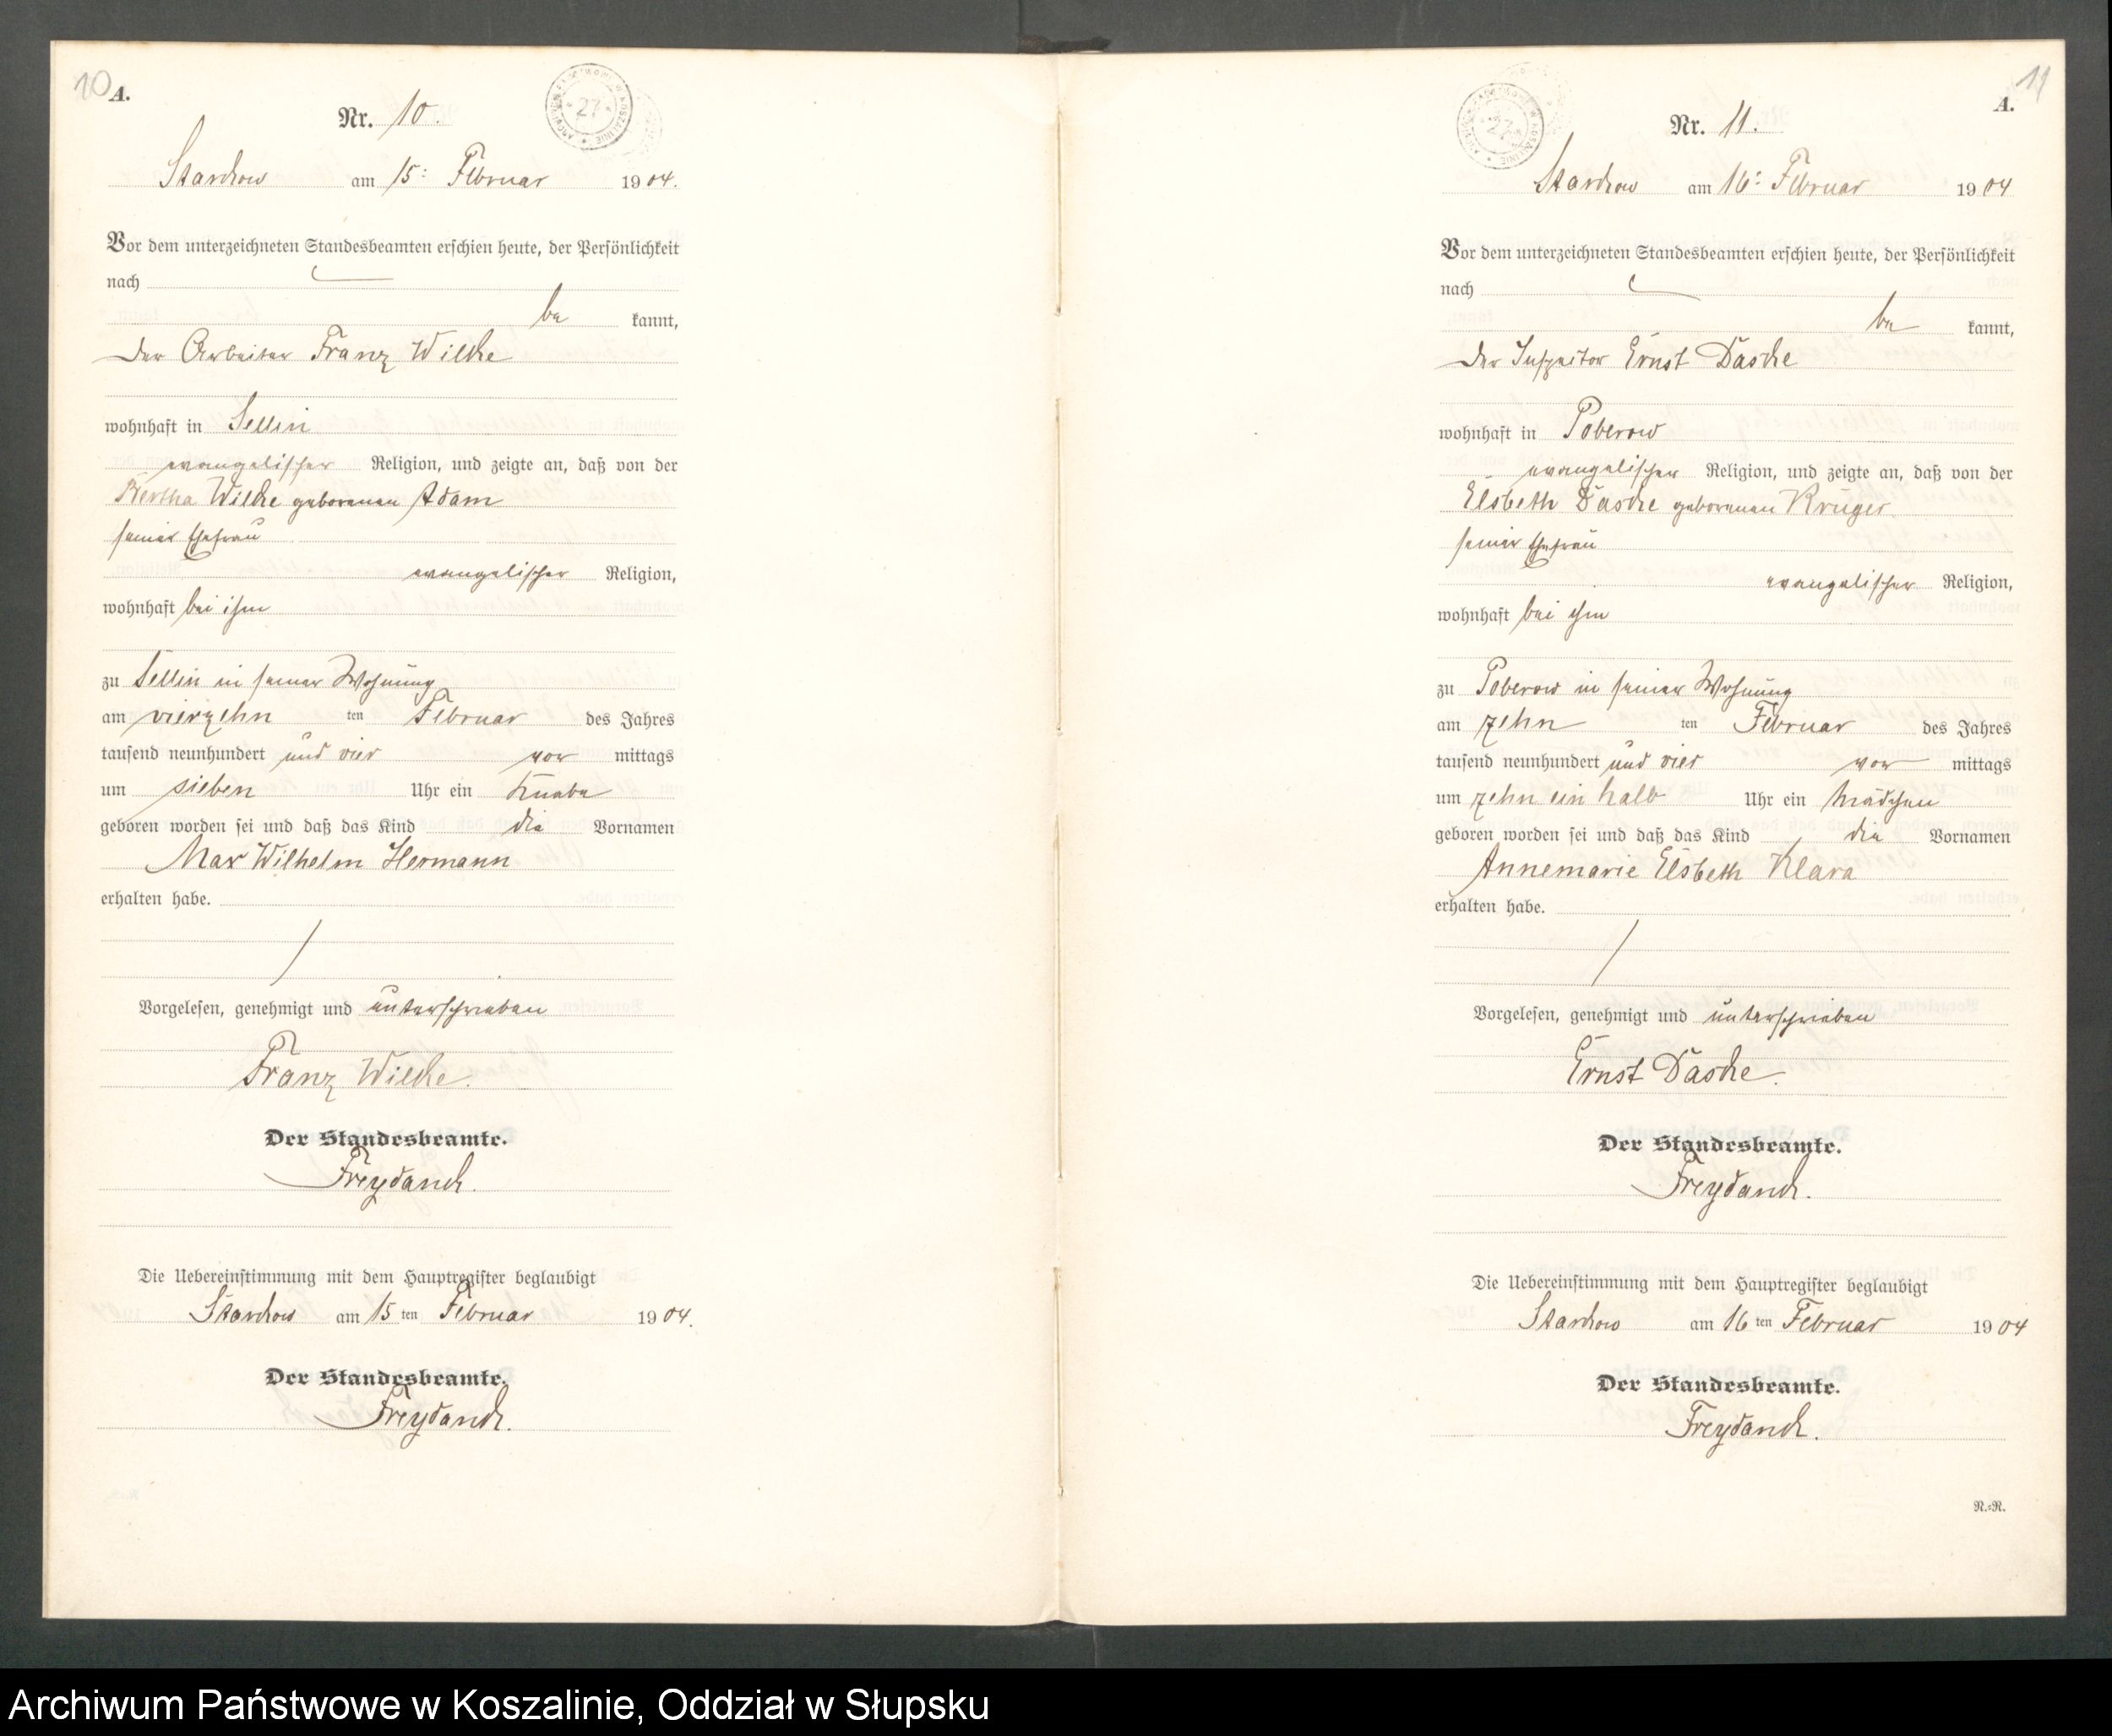 10
A.
Nr. 10.
27
Starckow am 15: Februar 1904.
Vor dem unterzeichneten Standesbeamten erschien heute, der Persönlichkeit
nach
be kannt,
der Arbeiter Franz Wilcke
wohnhaft in Sellin
evangelischer Religion, und zeigte an, daß von der
Bertha Wilcke geborenen Adam
seiner Ehefrau
evangelischer Religion,
wohnhaft bei ihm
zu Sellin in seiner Wohnung
am vierzehn ten Februar des Jahres
tausend neunhundert und vier vor mittags
um sieben Uhr ein Knabe
geboren worden sei und daß das Kind die Vornamen
Max Wilhelm Hermann
erhalten habe.
Vorgelesen, genehmigt und unterschrieben
Franz Wilcke.
Der Standesbeamte.
Freydanck.
Die Uebereinstimmung mit dem Hauptregister beglaubigt
Starckow am 15 ten Februar 1904.
Der Standesbeamte.
Freydanck.
11
A.
Nr. 11.
27
Starckow am 16: Februar 1904
Vor dem unterzeichneten Standesbeamten erschien heute, der Persönlichkeit
nach
be kannt,
der Inspector Ernst Daske
wohnhaft in Poberow
evangelischer Religion, und zeigte an, daß von der
Elsbeth Daske geborenen Krüger
seiner Ehefrau
evangelischer Religion,
wohnhaft bei ihm
zu Poberow in seiner Wohnung
am zehn ten Februar des Jahres
tausend neunhundert und vier vor mittags
um zehn ein halb Uhr ein Mädchen
geboren worden sei und daß das Kind die Vornamen
Annemarie Elsbeth Klara
erhalten habe.
Vorgelesen, genehmigt und unterschrieben
Ernst Daske.
Der Standesbeamte.
Freydanck.
Die Uebereinstimmung mit dem Hauptregister beglaubigt
Starckow am 16 ten Februar 1904
Der Standesbeamte.
Freydanck.
N.=R.
Archiwum Państwowe w Koszalinie, Oddział w Słupsku